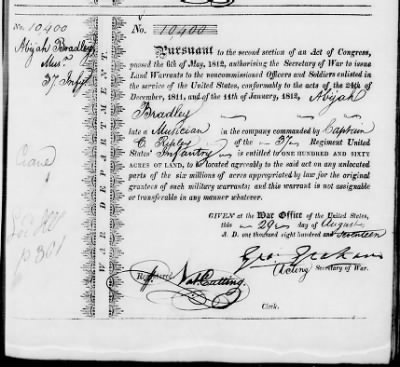 No. 10400
Abijah Bradley
Musn
37 Infy
Crane
1
p 301
WAR DEPARTMENT.
No. 10400
Pursuant to the second section of an Act of Congress,
passed the 6th of May, 1812, authorising the Secretary of War to issue
Land Warrants to the noncommissioned Officers and Soldiers enlisted in
the service of the United States, conformably to the acts of the 24th of
December, 1811, and of the 11th of January, 1812, Abijah
Bradley
late a Musician in the company commanded by Captain
C Ripley of the 37 Regiment United
States' Infantry is entitled to ONE HUNDRED AND SIXTY
ACRES OF LAND, to be located agreeably to the said act on any unlocated
parts of the six millions of acres appropriated by law for the original
grantees of such military warrants; and this warrant is not assignable
or transferable in any manner whatever.
GIVEN at the War Office of the United States,
this 29 day of August
A. D. one thousand eight hundred and seventeen
Geo Graham
(Acting) Secretary of War.
Registered Nat Cutting.
Clerk.